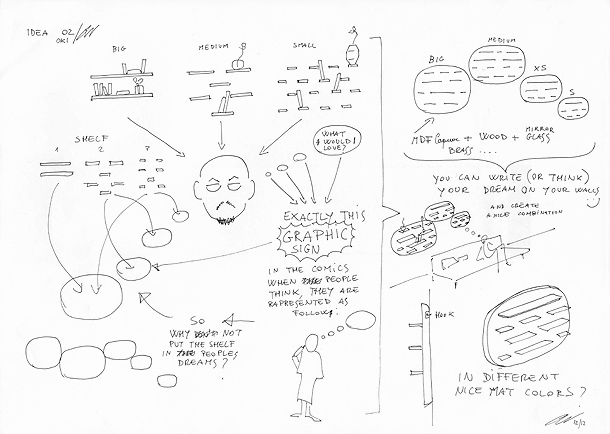 IDEA 02/
OKI
BIG
MEDIUM
SMALL
SHELF
1 2 3
WHAT
I WOULD I
LOVE?
EXACTLY THIS
GRAPHIC
SIGN
IN THE COMICS
WHEN PEOPLE
THINK, THEY ARE
RAPRESENTED AS
FOLLOWS:
SO
WHY NOT
PUT THE SHELF
IN PEOPLES
DREAMS?
BIG
MEDIUM
XS
S
MDF + WOOD + MIRROR
GLASS
BRASS ....
YOU CAN WRITE (OR THINK)
YOUR DREAM ON YOUR WALLS
AND CREATE
A NICE COMBINATION
HOOK
IN DIFFERENT
NICE MAT COLORS?
12/12